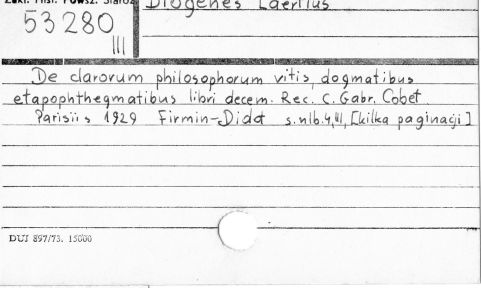 Zakł. Hist. Powsz. Staroż.
Diogenes Laertius
53280
III
De clarorum philosophorum vitis, dogmatibus
etapophthegmatibus libri decem. Rec. C. Gabr. Cobet
Parisiis 1929 Firmin-Didot s. nlb. 4, III, [kilka paginacji]
DUJ 897/73. 15000